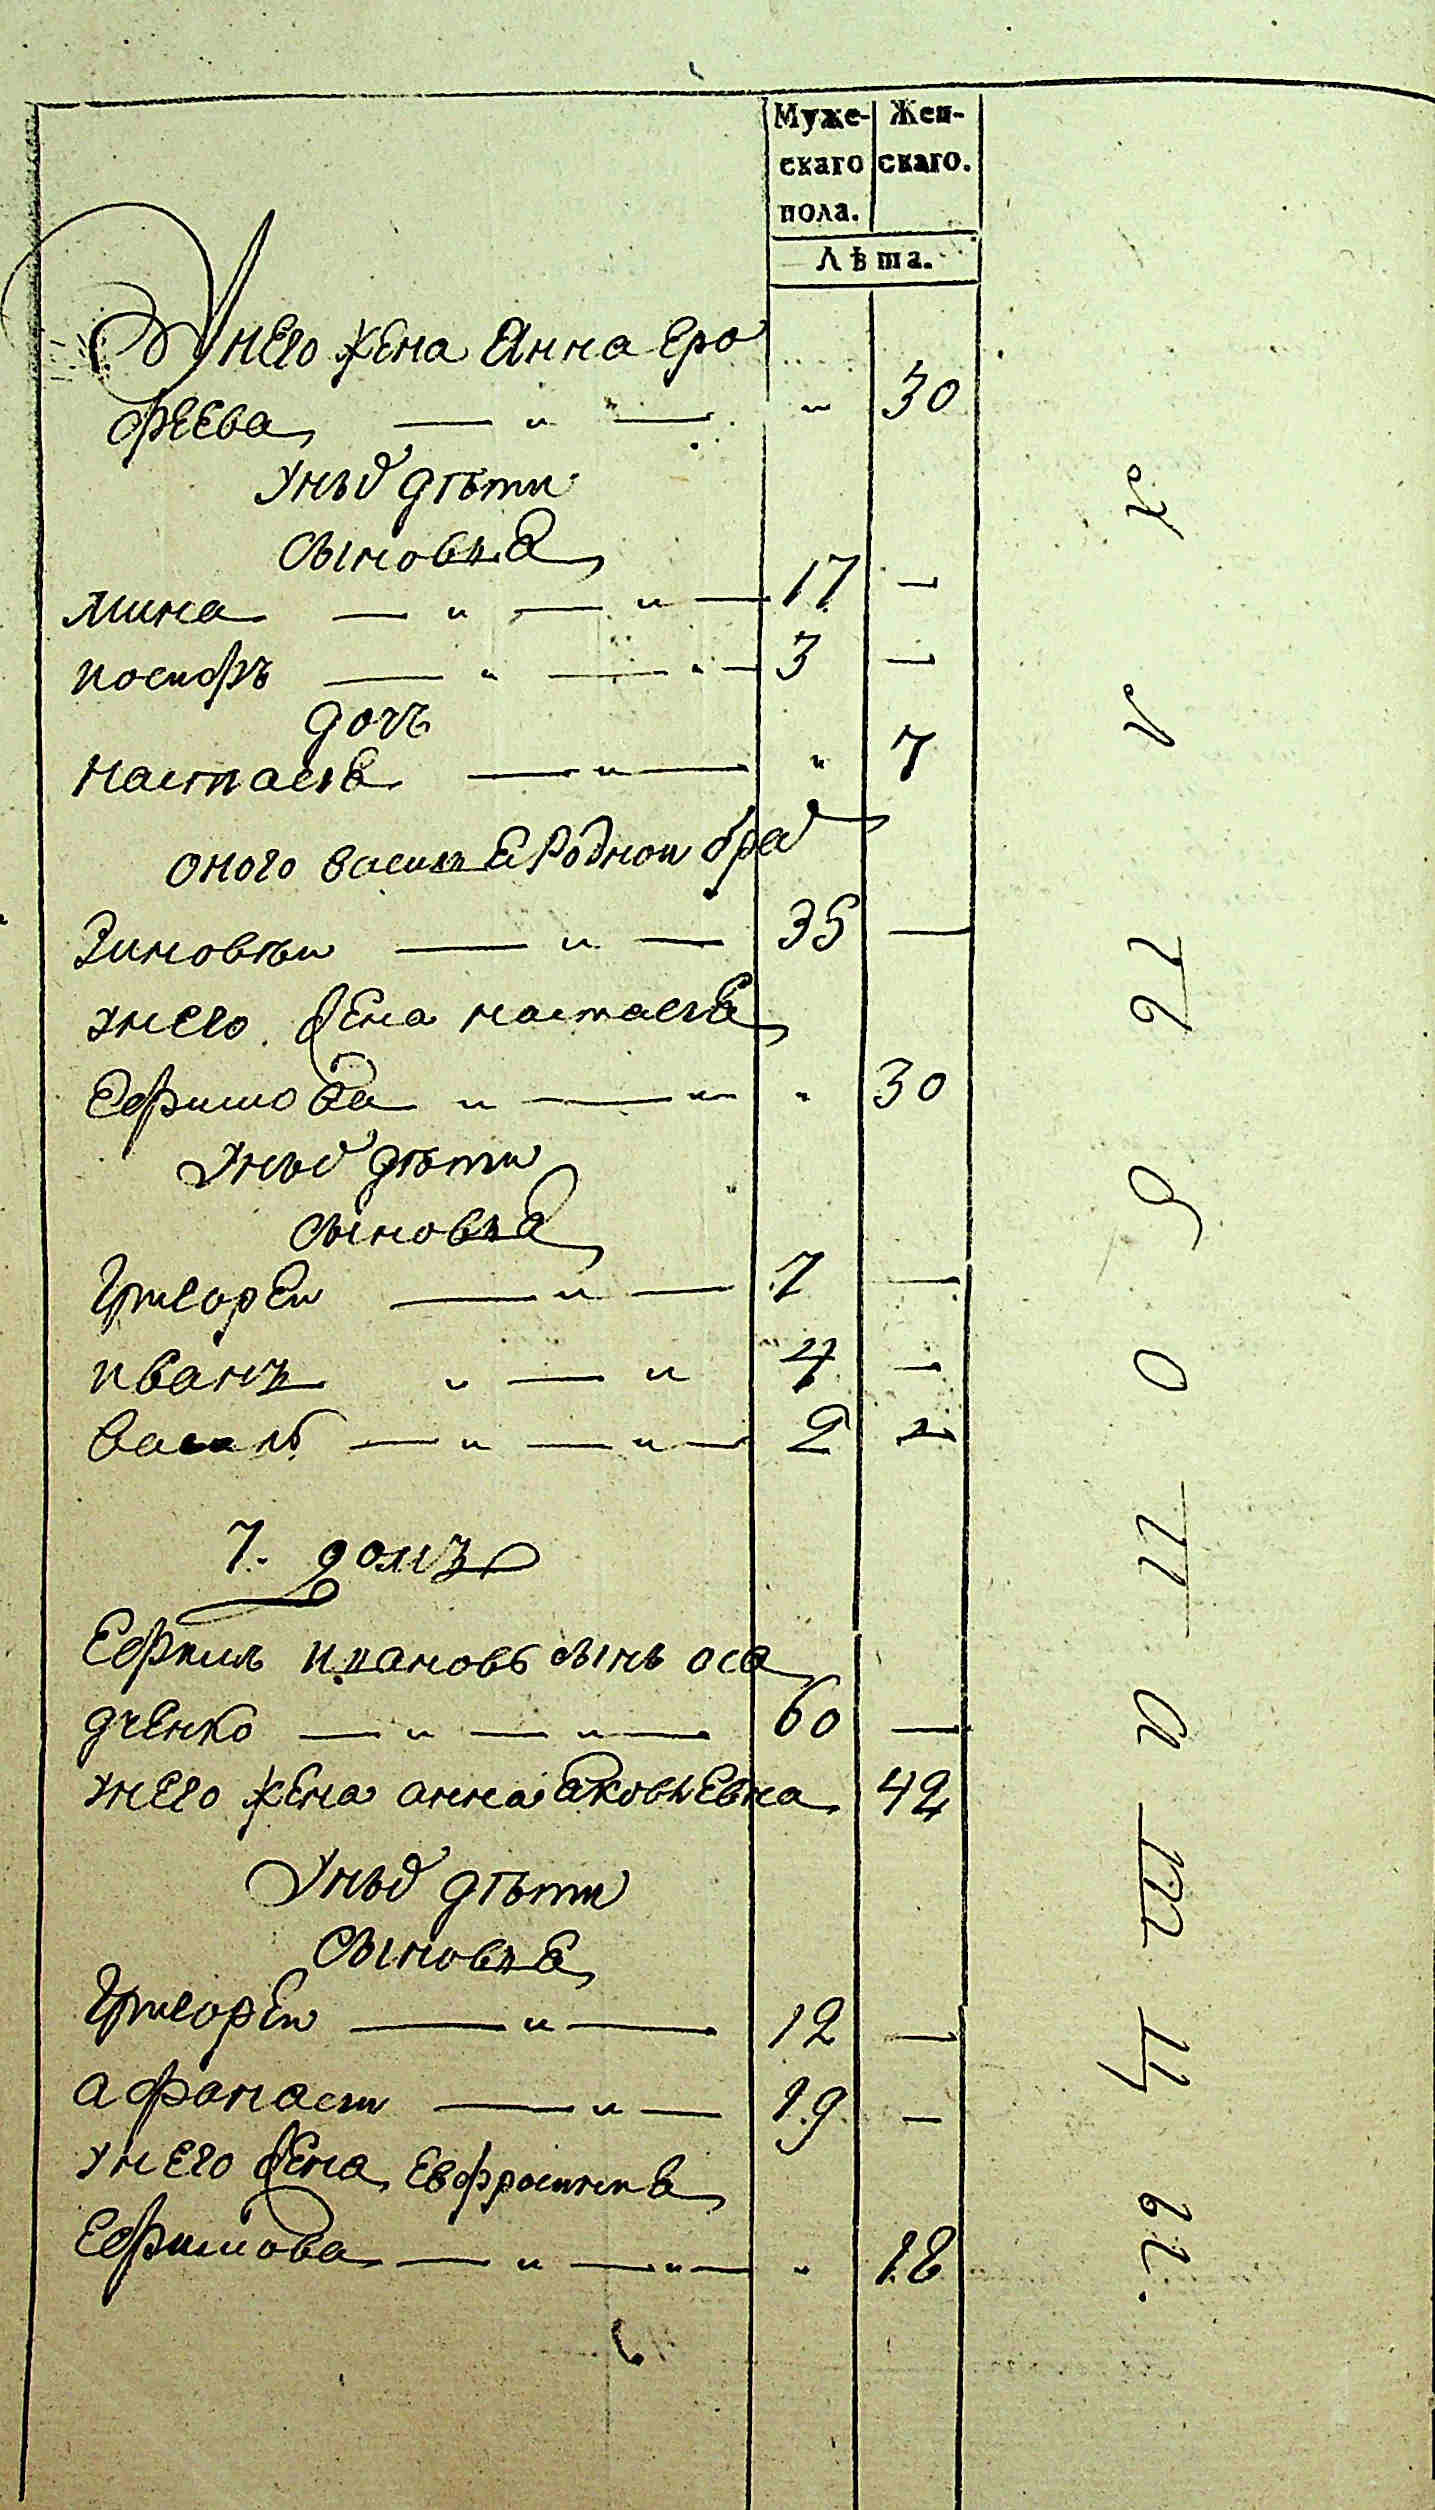 Муже- Жен-
скаго скаго.
пола.
Лѣта.
У него жена Анна Еро
феева — " — " 30
У нихъ дѣти
Сыновья
Мина — " — " — 17 —
Иосифъ — " — " — 3 —
дочь
Настасья — " — " 7
оного василья Родной брат
Зиновѣи — " — 35 —
у него жена настасья
Ефимова " — " " 30
у нихъ дѣти
сыновья
Григореи — " — 7 —
иванъ " — " 4 —
василѣ — " — " — 2 —
7. домъ
Ефимъ ивановъ сынъ оса
дченко — " — " — 60 —
у него жена анна яковьевна 42
У нихъ дѣти
Сыновья
Григореи — " — 12 —
афонасеи — " — 19 —
у него жена евфросинья
Ефимова — " — " — " 18